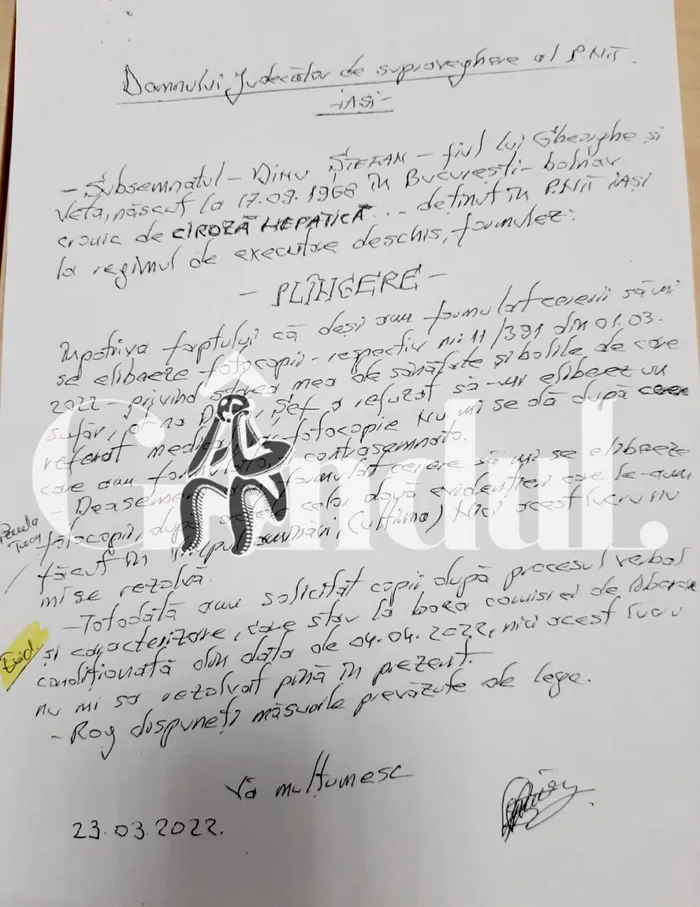 Domnului Judecător de supraveghere al P.N.T.
-IAȘI-
- Subsemnatul - DINU ȘTEFAN - fiul lui Gheorghe și
Veta, născut la 17.09.1968 în București - bolnav
cronic de CIROZĂ HEPATICĂ... deținut în P.N.T. IAȘI
la regimul de executare deschis, formulez:
- PLÎNGERE -
Împotriva faptului că deși am formulat cererii să mi
se elibereze fotocopii - respectiv nr. 11/391 din 01.03.
2022 - privind starea mea de sănătate și bolile de care
sufăr, Șef a refuzat să-mi elibereze un
referat fotocopie Nu mi se dă după
care am contrasemnate.
- Deasemenea formulat cerere să mi se elibereze
fotocopii, după evidențieri care le-am
făcut în (ultima) Nici acest lucru nu
mi se rezolvă.
- Totodată am solicitat copii după procesul verbal
și caracterizare, care stau la baza comisiei de liberare
Evid.
condiționată din data de 04.04.2022, nici acest lucru
nu mi sa rezolvat pînă în prezent.
- Rog dispuneți măsurile prevăzute de lege.
Vă mulțumesc
23.03.2022.
Gândul.